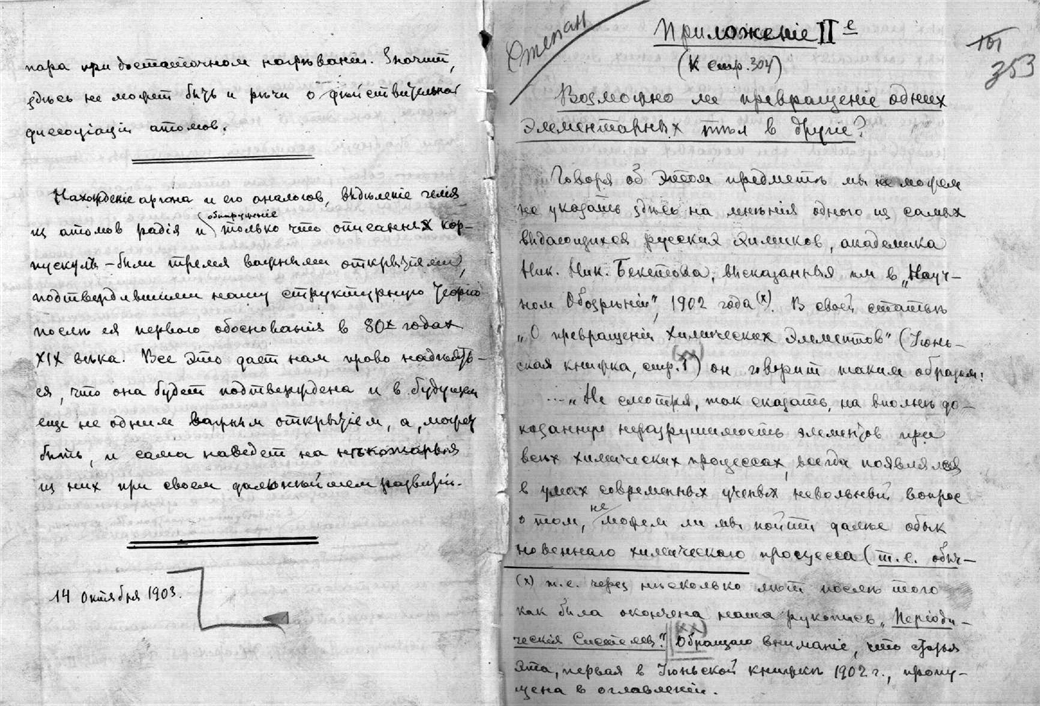 пара при достаточном нагрѣваніи. Значит,
здѣсь не может быть и рѣчи о дѣйствительной
диссоціаціи атомов.
Нахожденіе аргона и его аналогов, выдѣленіе гелія
из атомов радія и обнаруженіе только что описанных кор-
пускуль – были тремя важными открытіями,
подтвердившими нашу структурную теорію
послѣ ея первого обоснованія в 80х годах
XIX вѣка. Все это дает нам право надѣять-
ся, что она будет подтверждена и в будущем
еще не одним важным открытіем, а, может
быть, и сама наведет на нѣкоторыя
из них при своем дальнѣйшем развитіи.
14 Октября 1903.
Степан
Приложеніе IIе
(К стр. 304)
101
353
Возможно ли превращеніе одних
элементарных тѣл в другіе?
Говоря об этом предметѣ мы не можем
не указать здѣсь на мнѣнія одного из самых
выдающихся русских химиков, академика
Ник. Ник. Бекетова, высказанныя им в „Науч-
ном Обозрѣніи", 1902 года (х). В своей статьѣ
„О превращеніи химических элементов" (Іюнь-
ская книжка, стр. 1 (хх)) он говорит таким образом:
...„Не смотря, так сказать, на вполнѣ до-
казанную неразрушимость элементов при
всѣх химических процессах, всегда появлялся
в умах современных ученых невольный вопрос
о том, не можем ли мы пойти далѣе обык
новеннаго химическаго процесса (т.е. обыч-
(х) т.е. через нѣсколько лѣт послѣ того
как была окончена наша рукопись „Періоди-
ческія Системы". (хх) Обращаю вниманіе, что статья
эта, первая в Іюньской книжкѣ 1902 г., пропу-
щена в оглавленіи.